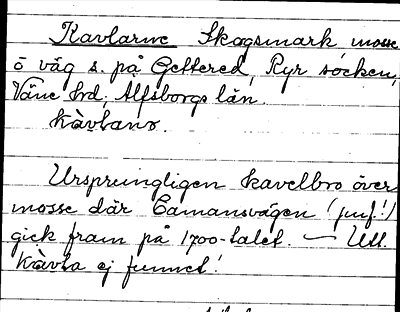 Kavlarne Skogsmark mosse
ö väg s. på Gettered, Ryr socken,
Väne hrd, Älfsborgs län.
kàvlanɐ.
Ursprungligen kavelbro över
mosse där Eamansvägen (jmf!)
gick fram på 1700-talet. — Utt.
kàvla ej funnet!